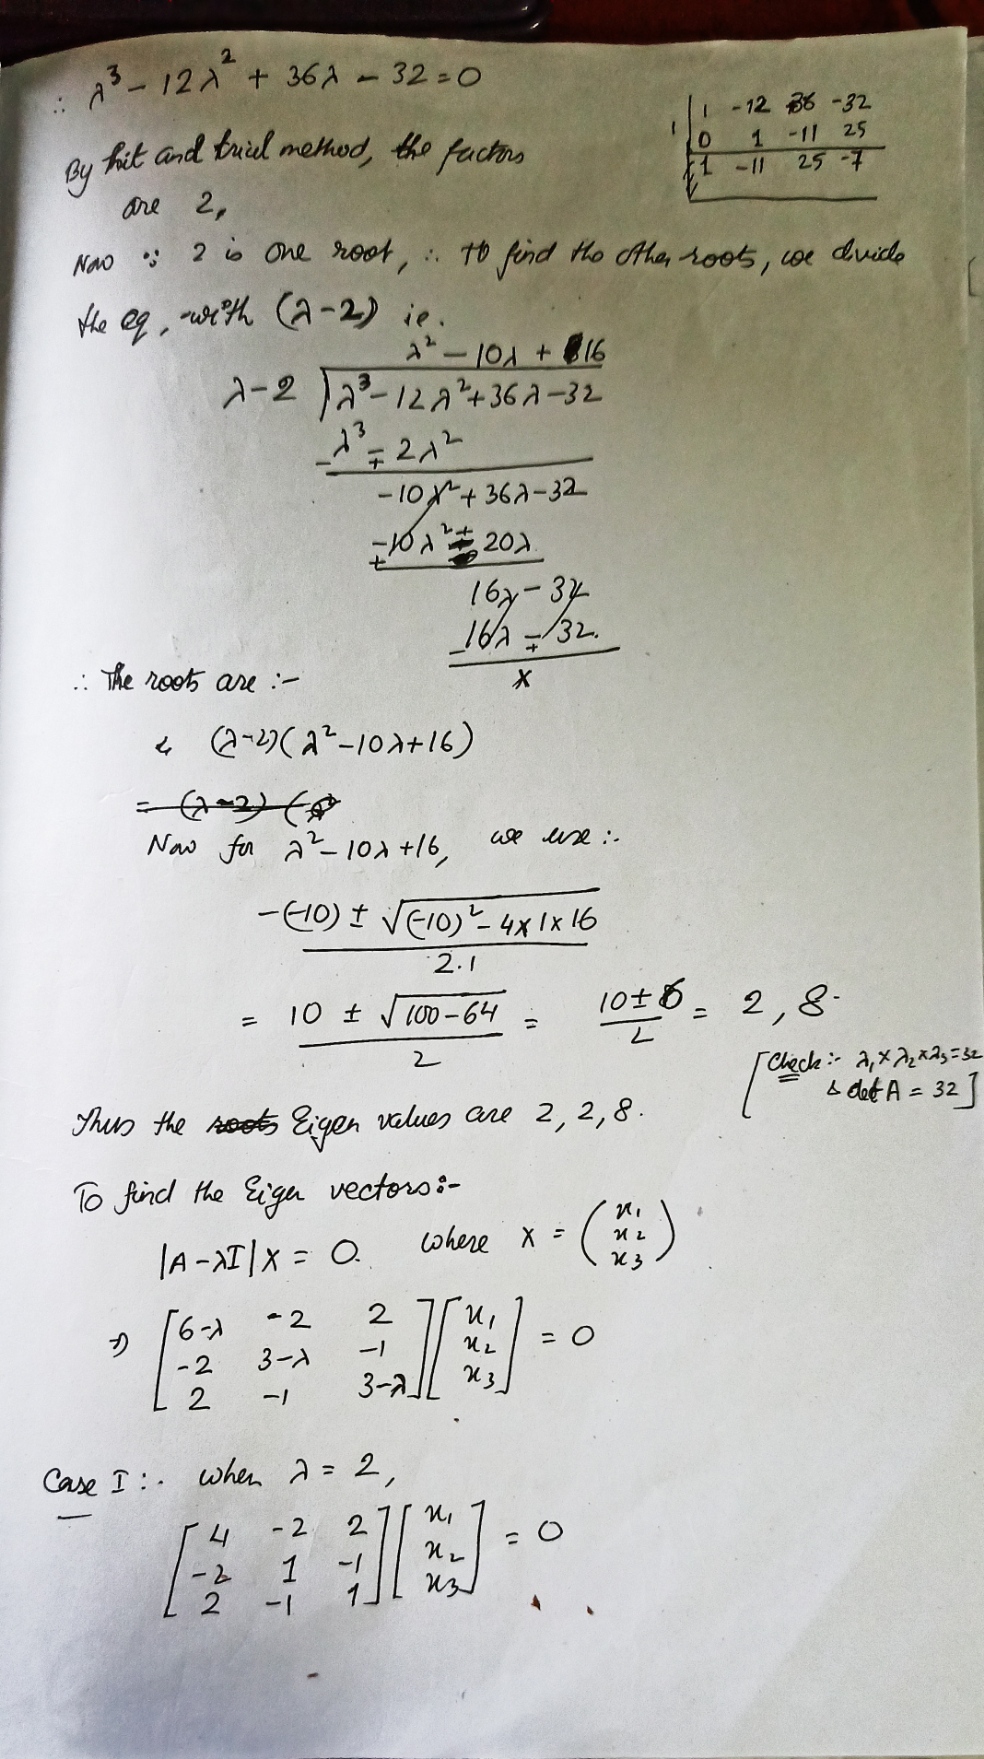 ∴ λ³ - 12λ² + 36λ - 32 = 0
1 -12 36 -32
1 0 1 -11 25
1 -11 25 -7
By hit and trial method, the factors
are 2,
Now ∵ 2 is one root, ∴ to find the other roots, we divide
the eq, with (λ-2) ie.
λ² - 10λ + 16
λ-2 ) λ³ - 12λ² + 36λ - 32
λ³ - 2λ²
- +
-10λ² + 36λ - 32
-10λ² + 20λ
+ -
16λ - 32
16λ - 32.
- +
x
∴ The roots are :-
(λ-2)(λ² - 10λ + 16)
= (λ-2) (
Now for λ² - 10λ + 16, we use :-
-(-10) ± √(-10)² - 4x1x16
2.1
= 10 ± √100-64 / 2 = 10 ± 6 / 2 = 2, 8.
[Check :- λ₁ x λ₂ x λ₃ = 32
& det A = 32]
Thus the roots Eigen values are 2, 2, 8.
To find the Eigen vectors :-
|A - λI| X = 0. where X = (x₁
x₂
x₃)
⇒ [6-λ -2 2] [x₁]
[-2 3-λ -1] [x₂] = 0
[2 -1 3-λ] [x₃]
Case I :- when λ = 2,
[4 -2 2] [x₁]
[-2 1 -1] [x₂] = 0
[2 -1 1] [x₃]